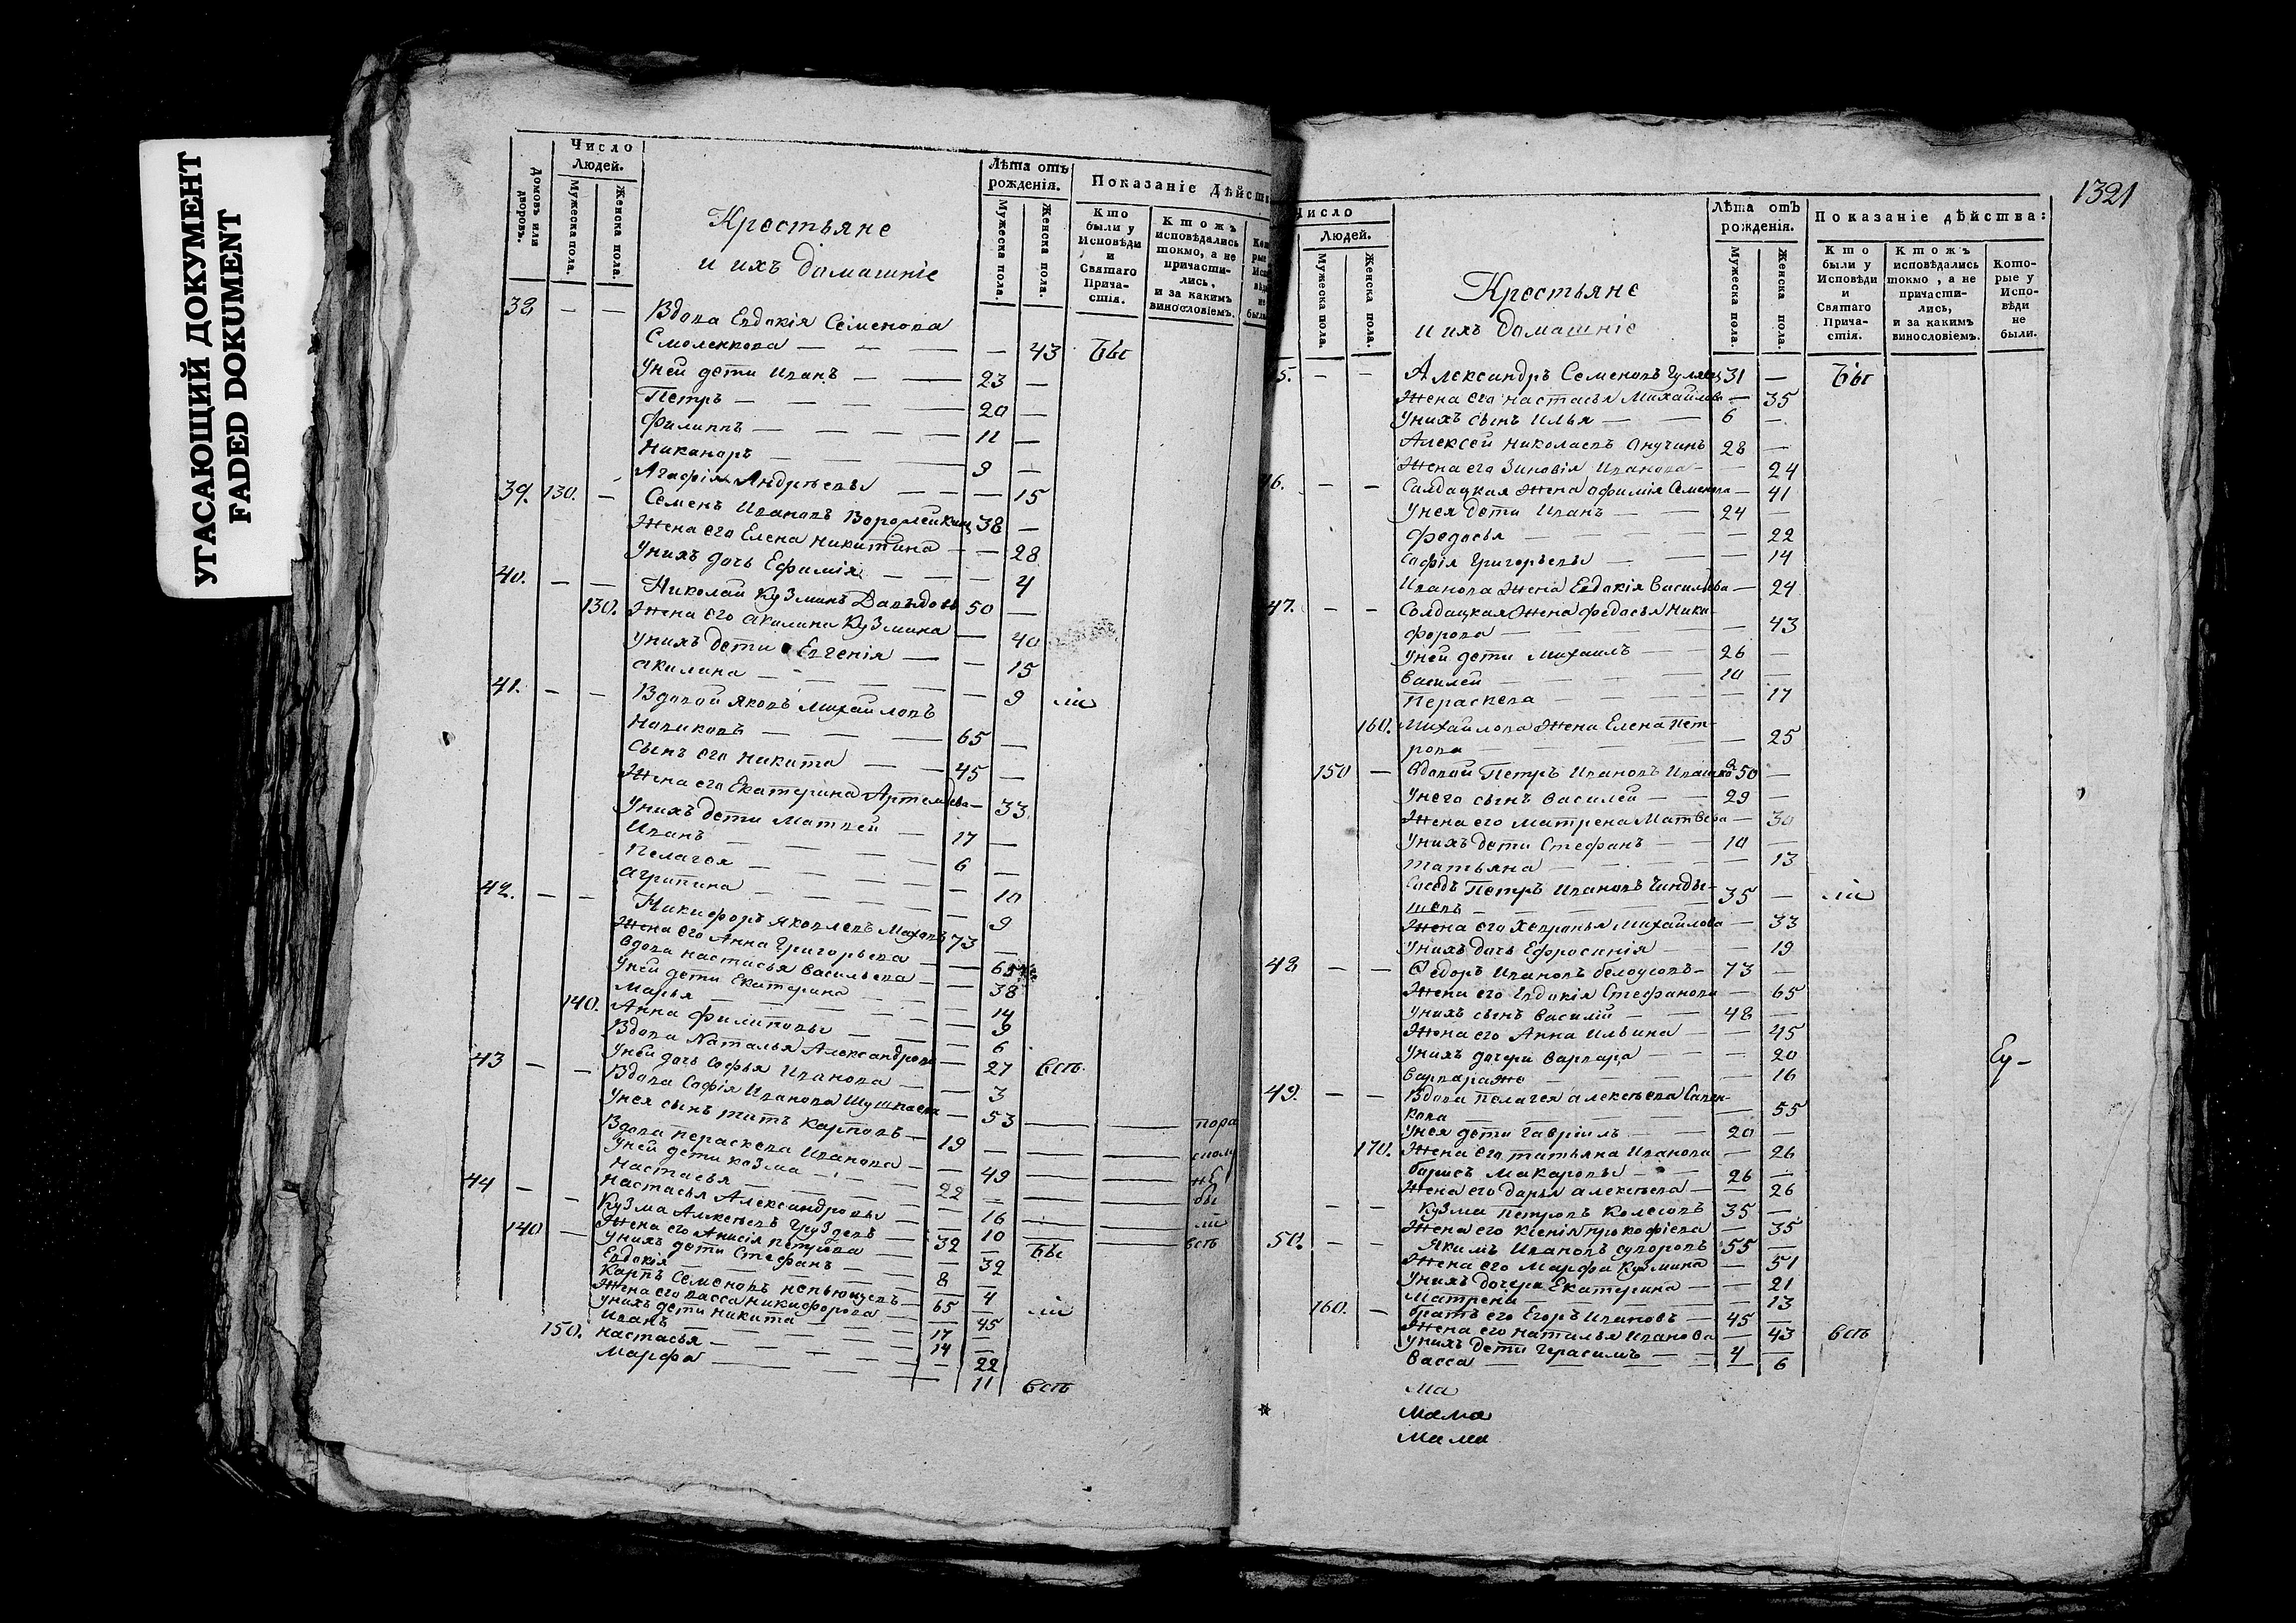 УГАСАЮЩИЙ ДОКУМЕНТ
FADED DOKUMENT
Домовъ или дворовъ.
Число
Людей.
Мужеска пола.
Женска пола.
Крестьяне
и ихъ домашніе
Лѣта отъ
рожденія.
Мужеска пола.
Женска пола.
Показаніе Дѣйств
Кто
были у
Исповѣди
и
Святаго
Прича-
стія.
Ктожъ
исповѣдались
токмо, а не
причасти-
лись,
и за какимъ
винословіемъ.
38 — — Вдова Евдокія Семенова
Смоленкова — — — — 43 Бы
Уней дети Иванъ — — 23 —
Петръ — — — — 20 —
Филиппъ — — — — 11 —
Никаноръ — — — 9 —
Агафія Андреевы — — — 15
39. 130. — Семенъ Ивановъ 38 —
Жена его Елена Никитина — — 28
Унихъ дочь Ефимія — — — 4
40. — — Николай Кузминъ Давыдовъ 50 —
130. Жена его Акилина Кузмина — 40
Унихъ дети Евгенія — — 15
Акилина — — — — 9 ли
41. — — Вдовой Яковъ Михайловъ
Новиковъ — — — 65 —
Сынъ его Никита — — 45 —
Жена его Екатерина Артемьева — 33
Унихъ дети Матвей — 17 —
Иванъ — — — — 6 —
Пелагея — — — — — 10
Агрипина — — — — — 9
42. — — Никифоръ Яковлевъ Маховъ 73 —
Жена его Анна Григорьева — — 65
Вдова Настасья Васильева — — 38
Уней дети Екатерина — — 14
Марья — — — — — 9
140. Анна Филиповы — — — 6
Вдова Наталья Александрова — 27 весть
Уней дочь Софья Иванова — — 3
43 — — Вдова Софія Иванова — 53 — —
Унея сынъ Титъ Карповъ — 19 — — —
Вдова Пераскева Иванова — — 49 — —
Уней дети Козма — — 22 — — —
Настасья — — — — 16 — —
Настасья Александровы — — 10 — —
44 — — Кузма Алексеевъ Груздевъ — 32 — Бы
Жена его Анисія Петрова — — 32
140 — Унихъ дети Стефанъ — — 8 —
Евдокія — — — — — 4
Карпъ Семеновъ — 65 — ли
Жена его Васса Никифорова — 45
Унихъ дети Никита — — 17 —
Иванъ — — — — 14 —
150. Настасья — — — — 22
Марфа — — — — 11 весть
1321
Число
Людей.
Мужеска пола.
Женска пола.
Крестьяне
и ихъ домашніе
Лѣта отъ
рожденія.
Мужеска пола.
Женска пола.
Показаніе дѣйства:
Кто
были у
Исповѣди
и
Святаго
Прича-
стія.
Ктожъ
исповѣдались
токмо, а не
причасти-
лись,
и за какимъ
винословіемъ.
Кото-
рые у
Испо-
вѣди
не
были.
5. — — Александръ Семеновъ 31 — Бы
Жена его Настасья Михайлова — 35
Унихъ сынъ Илья — — 6 —
Алексей Николаевъ Онучинъ 28 —
Жена его Зиновія Иванова — — 24
46. — — Салдацкая Жена Офимія Семенова — 41
Унея дети Иванъ — — 24 —
Федосья — — — — — 22
Софія Григорьевы — — — 14
Иванова Жена Евдокія Васильева — 24
47. — — Солдацкая Жена Федосья Ники-
форова — — — — 43
Уней дети Михаилъ — — 26 —
Василей — — — — 10 —
Пераскева — — — — — 17
160. Михайлова Жена Елена Пет-
рова — — — — — 25
150 — Вдовой Петръ Ивановъ 50 —
Унего сынъ Василей — — 29 —
Жена его Матрена Матвева — 30
Унихъ дети Стефанъ — — 10 —
Татьяна — — — — — 13
Соседъ Петръ Ивановъ Чинды-
шевъ — — — 35 — ли
Жена его Хевронья Михайлова — 33
Унихъ дочь Ефросинія — 19
48 — — Федоръ Ивановъ Белоусовъ — 73 —
Жена его Евдокія Стефанова — 65
Унихъ сынъ Василій — — 48 —
Жена его Анна Ильина — — 45
Унихъ дочери Варвара — — — 20
Варвара же — — — — 16
49. — — Вдова Пелагея Алексеева Сапен-
кова — — — — 55
Унея дети Гавріилъ — — 20 —
170. Жена его Татьяна Иванова — 26
Борисъ Макаровы — — 26 —
Жена его Дарья Алексеева — — 26
— — Кузма Петровъ Колесовъ 35 —
Жена его Ксенія Прокофіева — 35
50. — — Якимъ Ивановъ Суворовъ 55 —
Жена его Марфа Кузмина — 51
Унихъ дочери Екатерина — — 21
Матрена — — — — 13
160. — Братъ его Егоръ Ивановъ — 45 —
Жена его Наталья Иванова — 43 весть
Унихъ дети Герасимъ — — 4 —
Васса — — — — — 6
ма
мама
мама